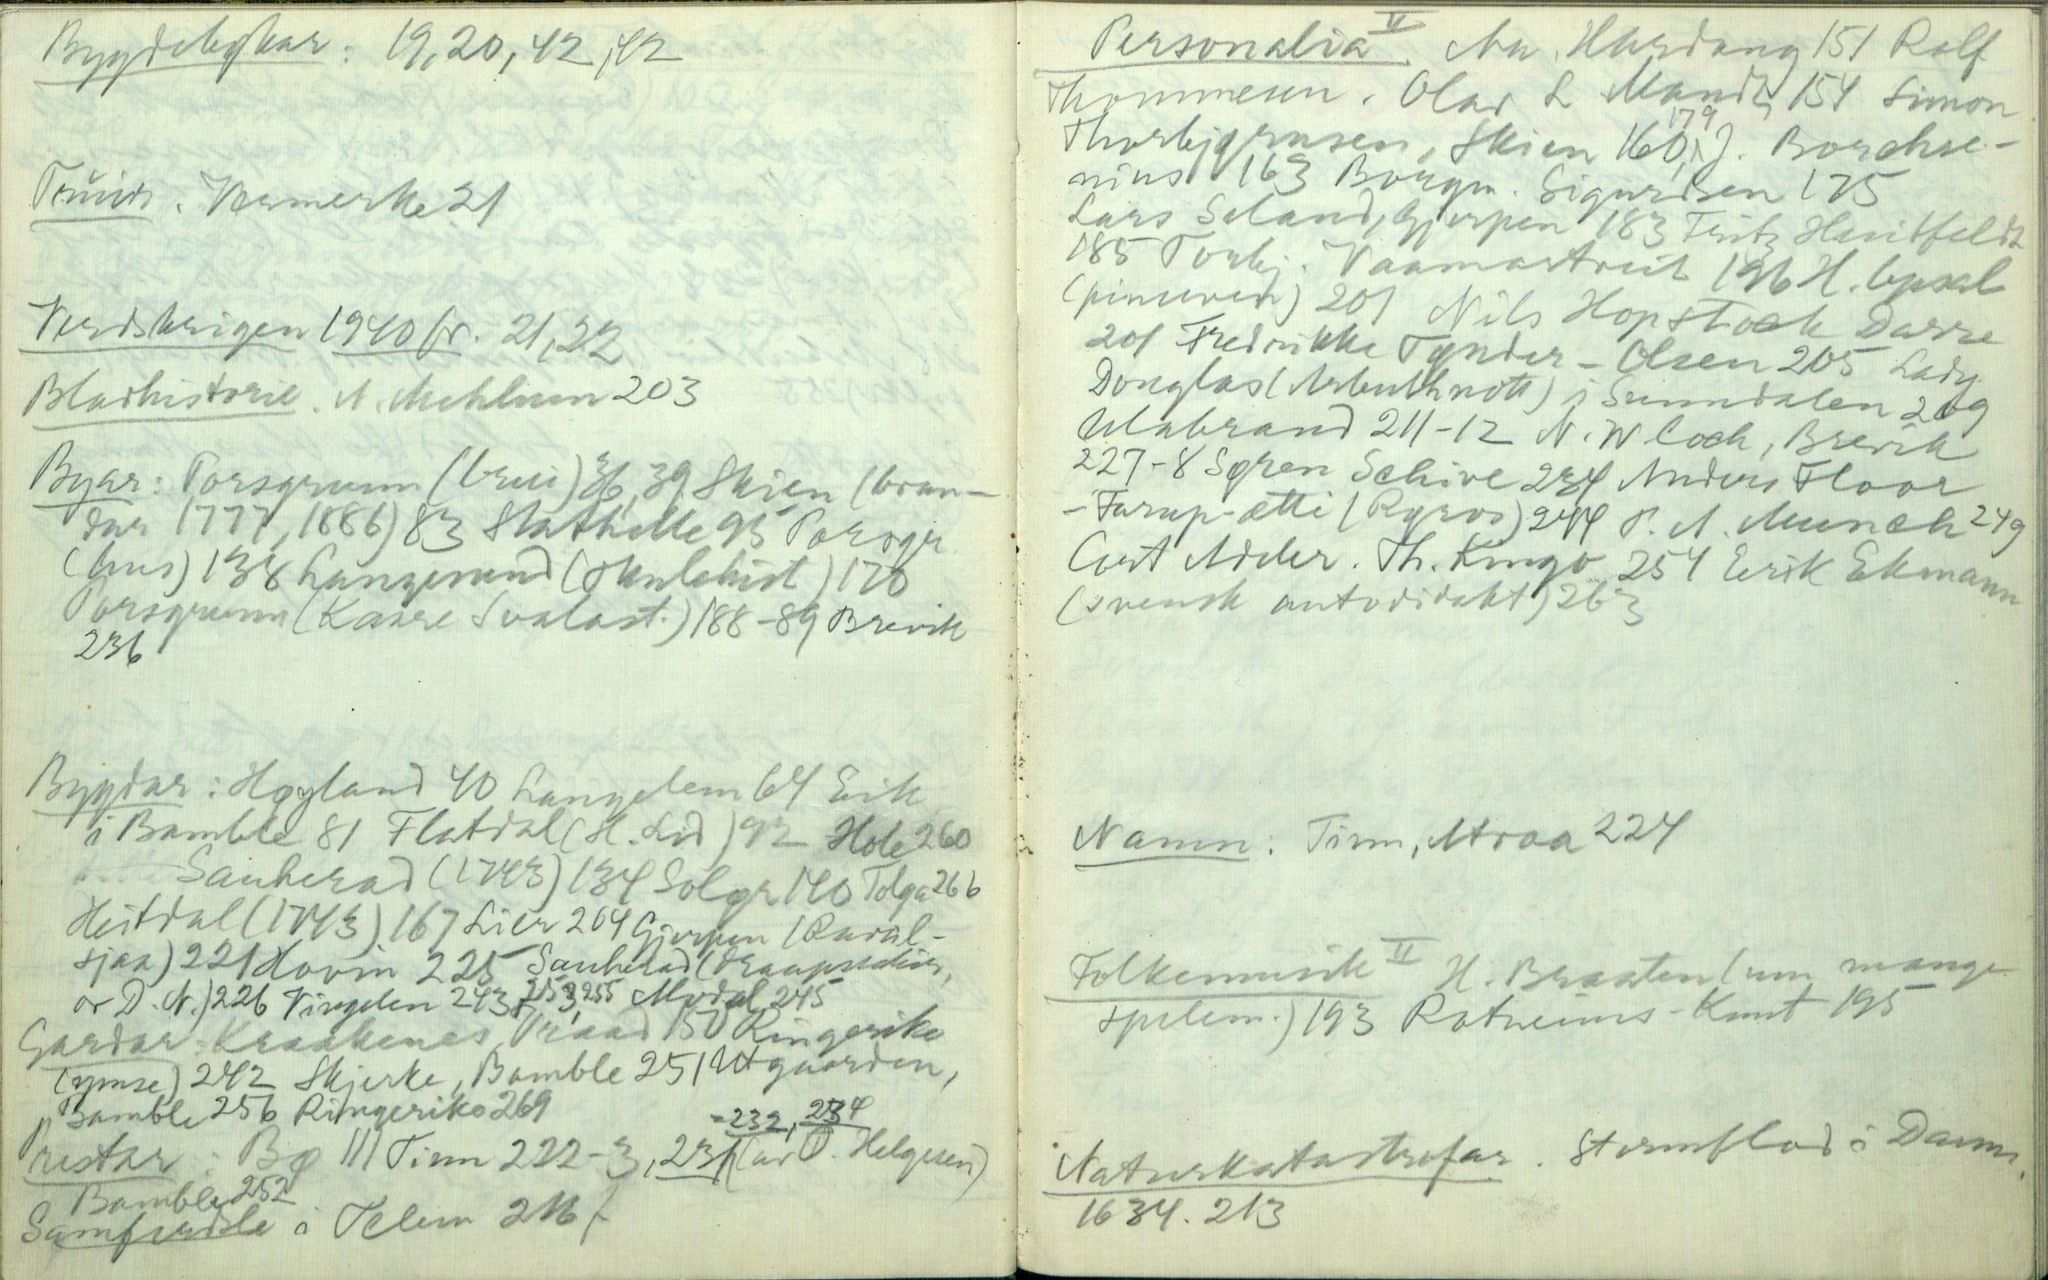 Bygdebøkar: 19, 20, 42, 42
Vermerke 21
Verdskrigen 1940 fr. 21, 22
Bladhistorie. N. Mehlum 203
Byar: Porsgrunn (brui) 36, 39, Skien (bran-
dar 1777, 1886) 83 Stathelle 95 Porsgr.
(hus) 138 Langesund (skulehist) 170
Porsgrunn (Kaare Svalast.) 188-89 Brevik
236
Bygdar: Høyland 40 Langelem 64 Eik
i Bamble 81 Flatdal (H. Lid) 92 Hole 260
Sauherad (1743) 134 Solgr 140 Tolga 266
Heitdal (1743) 167 Lier 264 Gjerpen (Raval-
sjaa) 221 Hovin 225 Sauherad (draapssaker,
or D. N.) 226 Vingelen 243 f 253, 255 Mysdal 245
Gardar: Kraakenes, Vraad 150 Ringerike
(ymse) 242 Skjerke, Bamble 251 Utgaarden,
Bamble 256 Ringerike 269
-232, 234
Prestar: Bø 111 Tinn 222-3, 231 (av P. Helgesen)
Bamble 252
Samferdsle i Telem 216 f
Personalia II. Hardang 151 Rolf
Thommesen. Olav L Mandt 154 Simon
Thorbjørnsen, Skien 160, 179 J. Borchse-
nius 163 Borgm. Sigurdsen 175
Lars Seland, Gjerpen 183 Fritz Huitfeldt
185 Torbj. Vaamartveit 196 H. Upsal
(pinseven) 201 Nils Hopstock Darre
201 Fredrikke Tynder-Olsen 205 Lady
Douglas (Arbuthnott) i Sunndalen 209
Ulabrand 211-12 N. W Coch, Brevik
227-8 Søren Schive 234 Anders Floor
-Farup-ætti (Røros) 244 P. A. Munch 249
Cort Adeler. Th. Kingo 254 Erik Ekmann
(svensk autodidakt) 263
Namn: Tinn, Atraa 224
Folkemusik II H. Braaten (um mange
spelem.) 193 Rotneims-Knut 195
Naturkatastrofar. Stormflod i Danm.
1634. 213